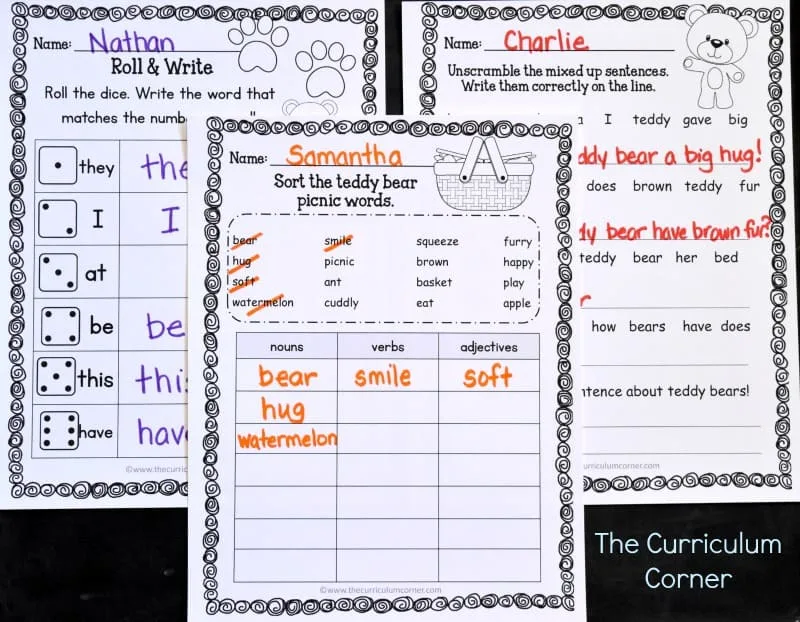 Name: Nathan
Roll & Write
Roll the dice. Write the word that
matches the
they the
I I
at
be be
this
have
©www.thecurric
Name: Samantha
Sort the teddy bear
picnic words.
bear smile squeeze furry
hug picnic brown happy
soft ant basket play
watermelon cuddly eat apple
nouns verbs adjectives
bear smile soft
hug
watermelon
©www.thecurriculumcorner.com
Name: Charlie
Unscramble the mixed up sentences.
Write them correctly on the line.
a I teddy gave big
bear a big hug!
does brown teddy fur
bear have brown fur?
teddy bear her bed
how bears have does
about teddy bears!
curriculumcorner.com
The Curriculum
Corner